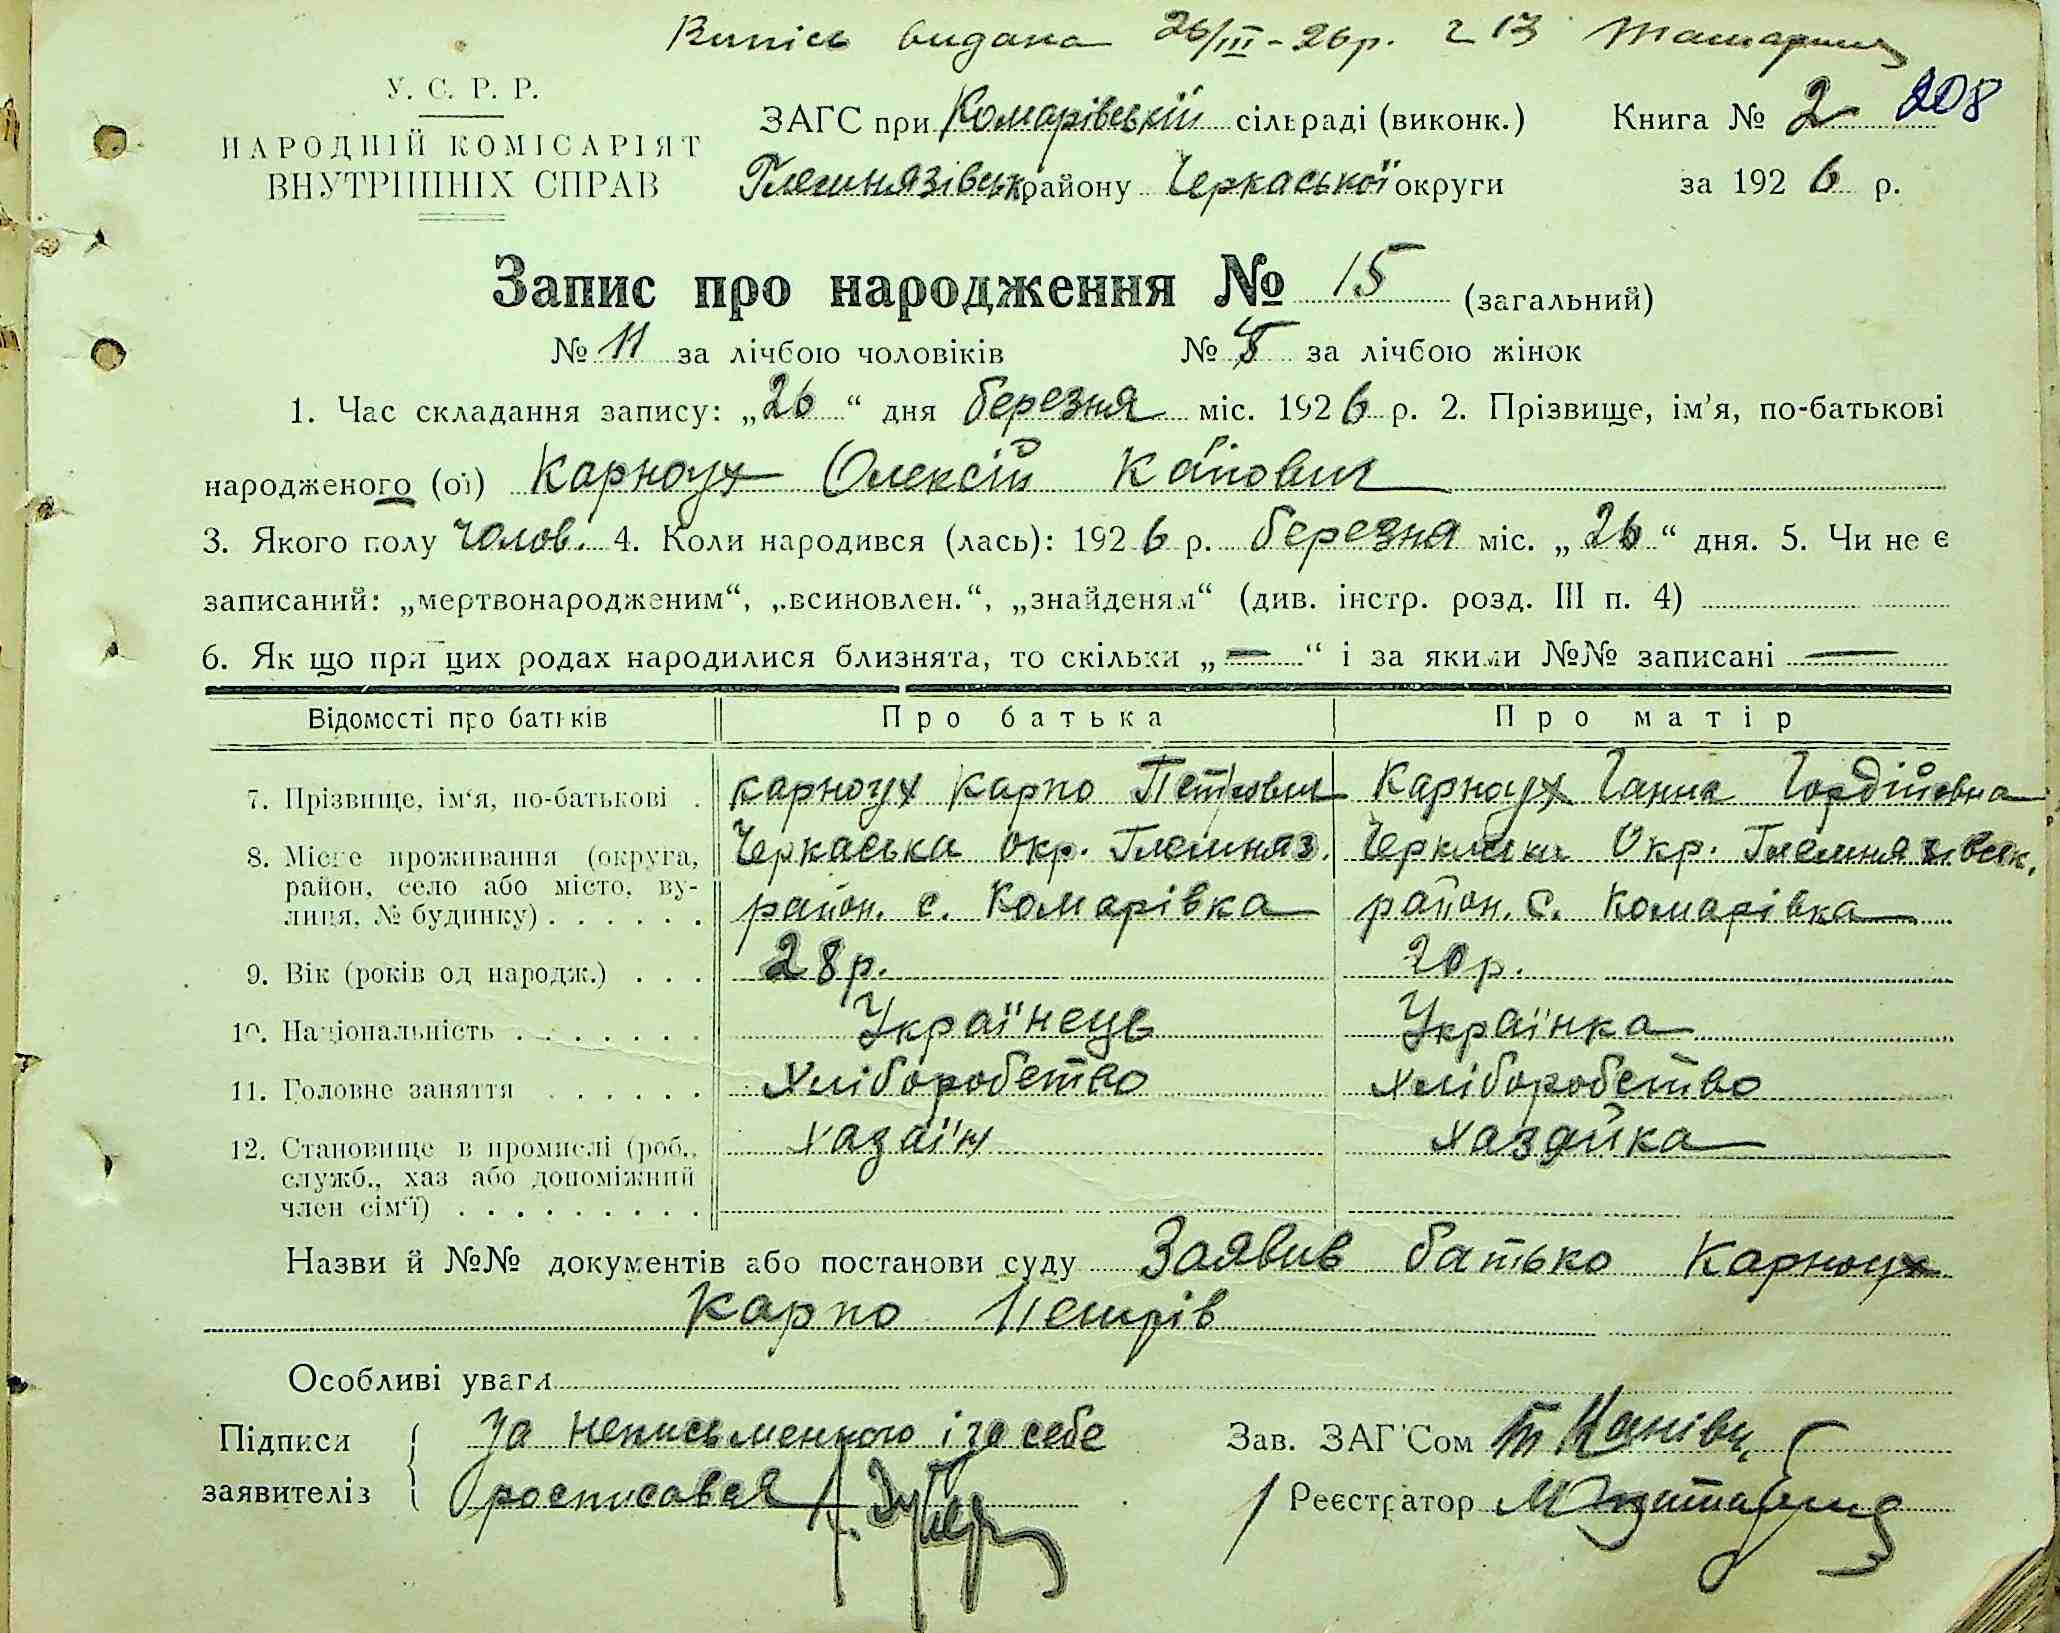 Випись видана 26/III-26р. 13
У. С. Р. Р.
НАРОДНІЙ КОМІСАРІЯТ
ВНУТРІШНІХ СПРАВ
ЗАГС при Комарівській сільраді (виконк.)
Книга № 2 208
Гляшнязівськ району Черкаської округи
за 1926 р.
Запис про народження № 15 (загальний)
№ 11 за лічбою чоловіків № за лічбою жінок
1. Час складання запису: „26“ дня березня міс. 1926 р. 2. Прізвище, ім’я, по-батькові
народженого (ої) Карноух Олексій
3. Якого полу чолов. 4. Коли народився (лась): 1926 р. березня міс. „26“ дня. 5. Чи не є
записаний: „мертвонародженим“, „всиновлен.“, „знайденям“ (див. інстр. розд. III п. 4)
6. Як що при цих родах народилися близнята, то скільки „—“ і за якими №№ записані —
Відомості про батьків Про батька Про матір
7. Прізвище, ім‘я, по-батькові . Карноух Карпо Петрович Карноух Ганна Гордійовна
8. Місце проживання (округа, район, село або місто, вулиця, № будинку) . . . . . .
Черкаська окр. Глемняз.
район. с. Комарівка
Черкаська Окр. Глемнязівськ.
район. с. Комарівка
9. Вік (років од народж.) . . . 28 р. 20 р.
10. Національність . . . . . . . Українець Українка
11. Головне заняття . . . . . . Хліборобство Хліборобство
12. Становище в промислі (роб., хазаїн хазяйка
служб., хаз або допоміжний
член сім‘ї) . . . . . . . . .
Назви й №№ документів або постанови суду Заявив батько Карноух
Карпо Петрів
Особливі уваги
Підписи За неписьменного і за себе
заявителів росписався
Зав. ЗАГ’Сом Канівец
Реєстратор